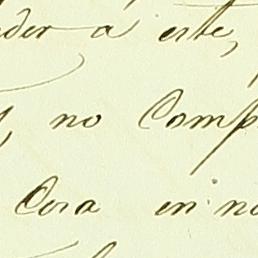 der a este,
no Comp
Cosa en no